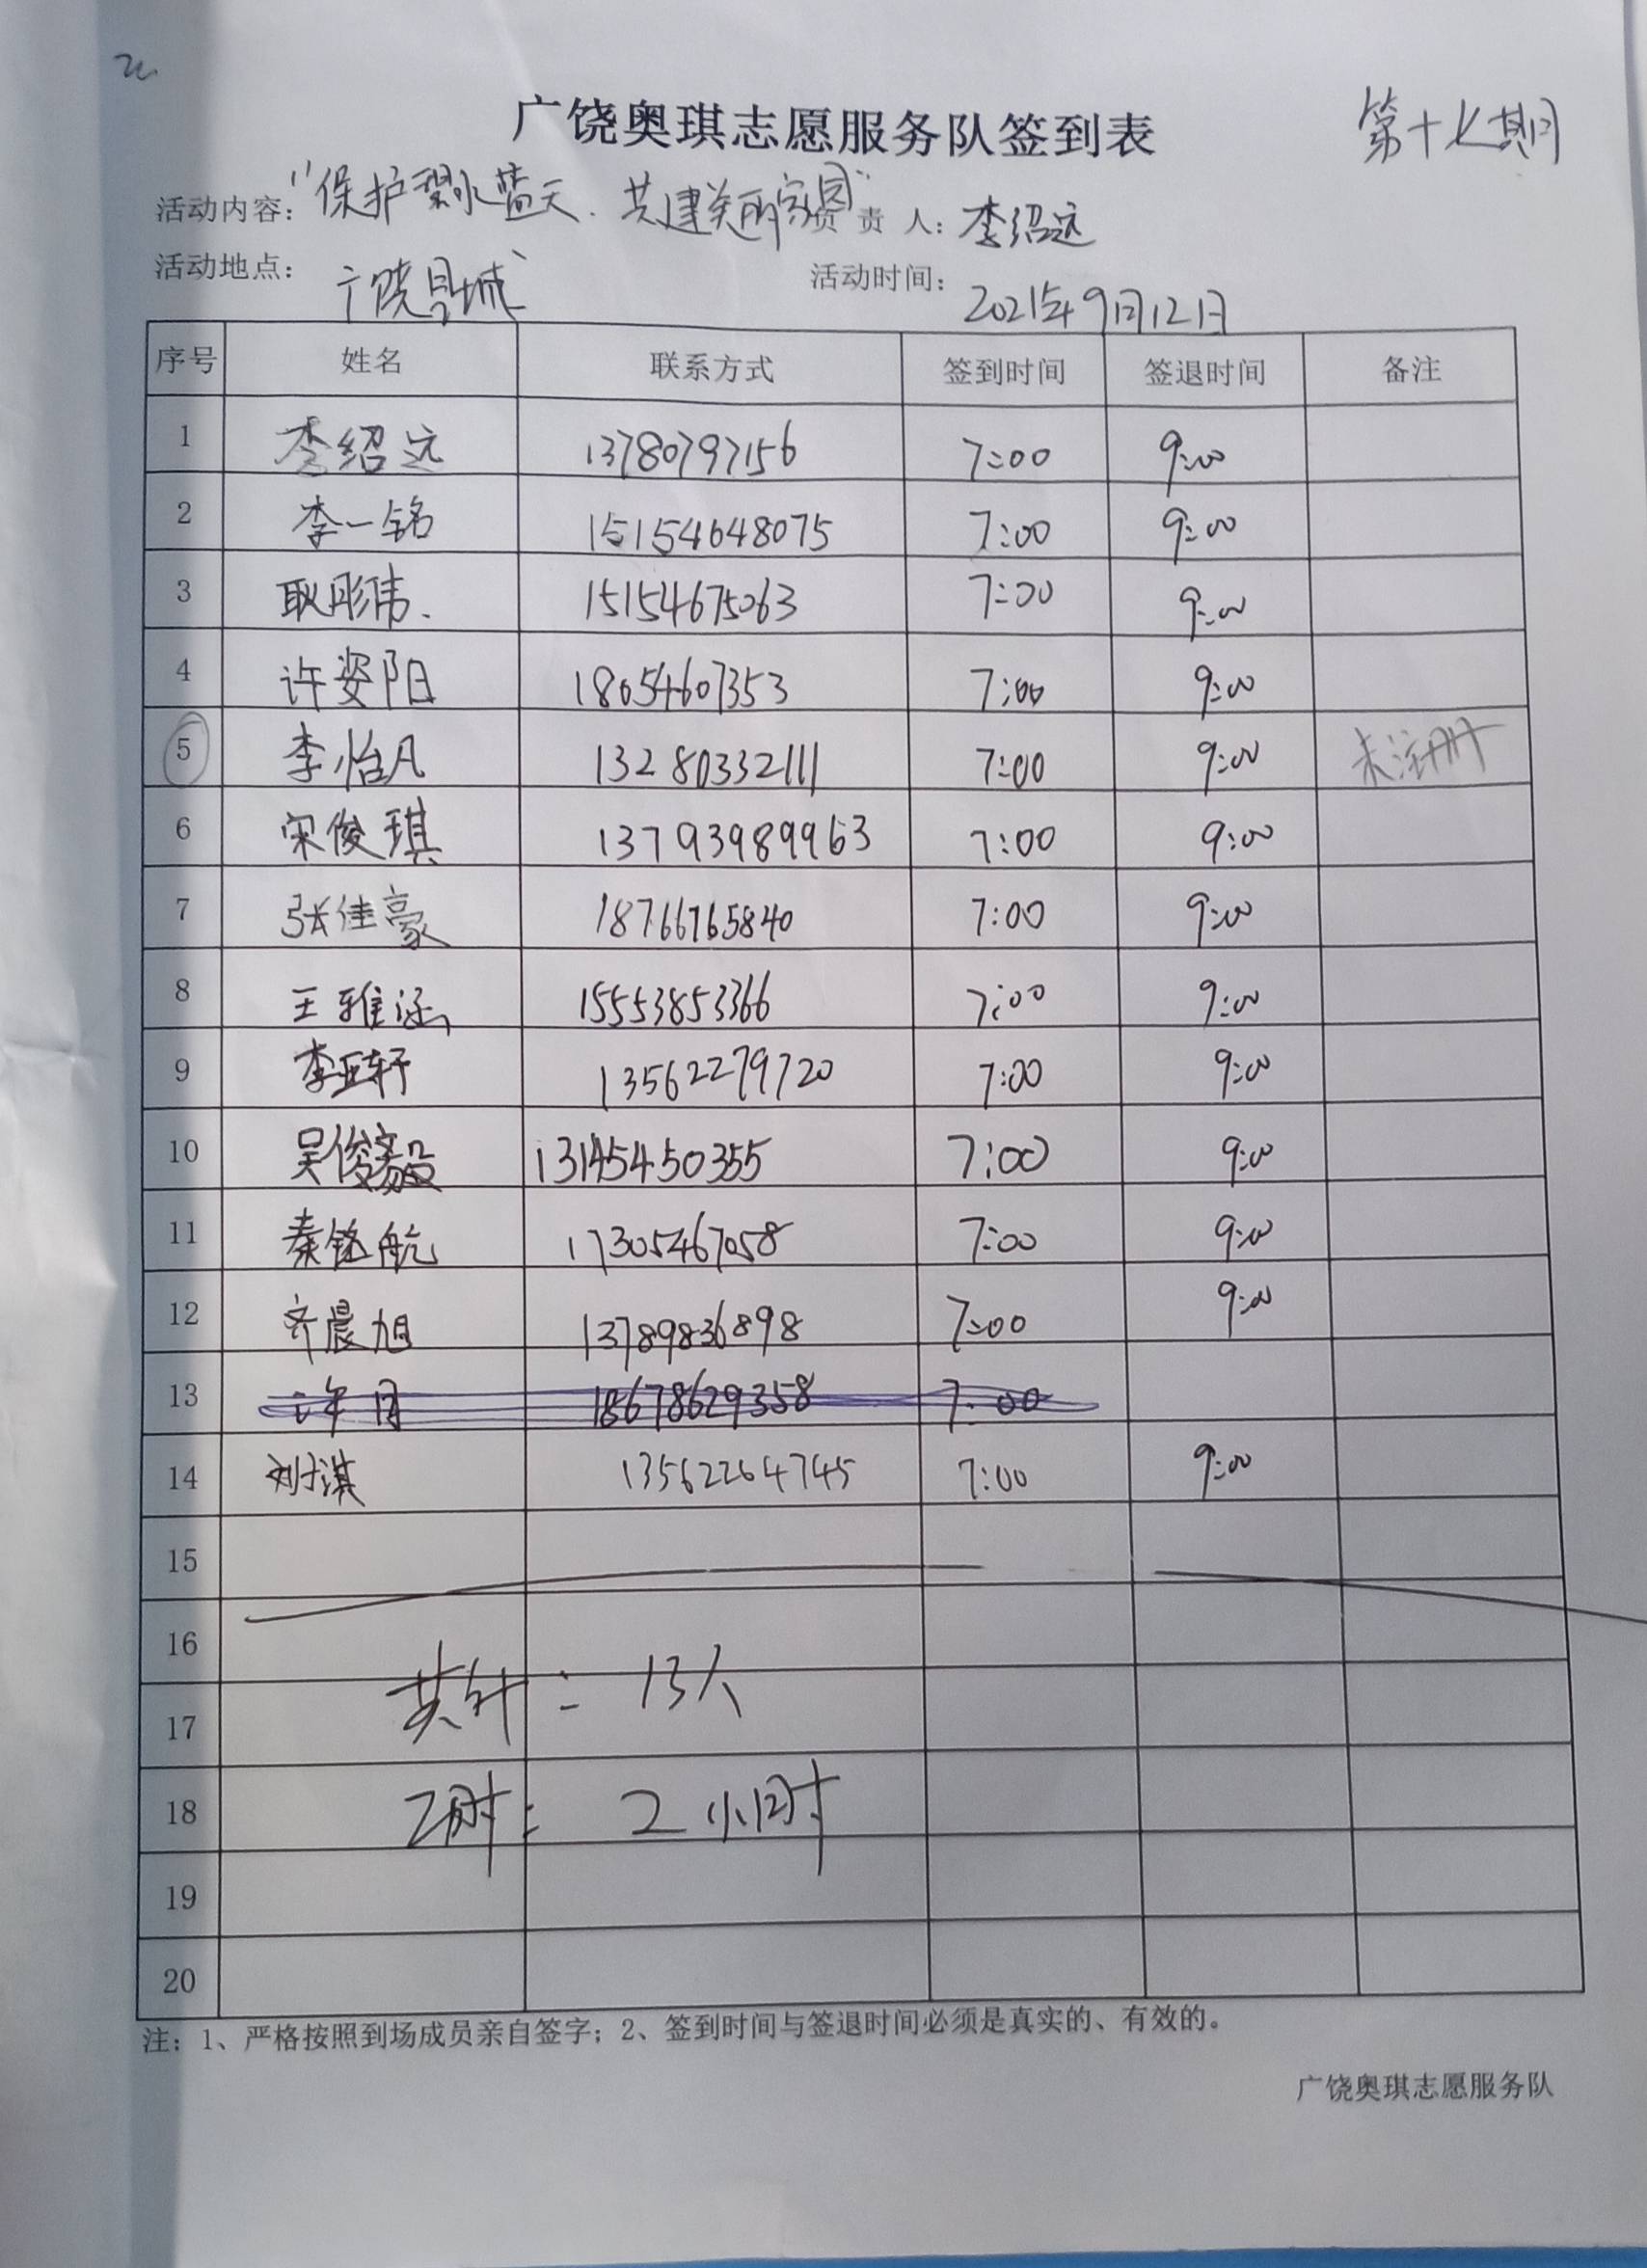 广饶奥琪志愿服务队签到表
第十七期
活动内容：“保护碧水蓝天、共建美丽家园” 负责人：李绍远
活动地点：广饶县城 活动时间：2021年9月12日
序号 姓名 联系方式 签到时间 签退时间 备注
1 李绍远 13780797156 7:00 9:00
2 李一铭 15154648075 7:00 9:00
3 耿彤伟 15154675063 7:00 9:00
4 许姿阳 18054607353 7:00 9:00
5 李怡凡 13280332111 7:00 9:00 未注册
6 宋俊琪 13793989963 7:00 9:00
7 张佳豪 18766765840 7:00 9:00
8 王雅涵 15553853366 7:00 9:00
9 李亚轩 13562279720 7:00 9:00
10 吴俊毅 13145450355 7:00 9:00
11 秦铭航 17305467058 7:00 9:00
12 齐晨旭 13789836898 7:00 9:00
13 18678629358 7:00
14 刘淇 13562264745 7:00 9:00
15
16
17 共计：13人
18 工时：2小时
19
20
注：1、严格按照到场成员亲自签字；2、签到时间与签退时间必须是真实的、有效的。
广饶奥琪志愿服务队